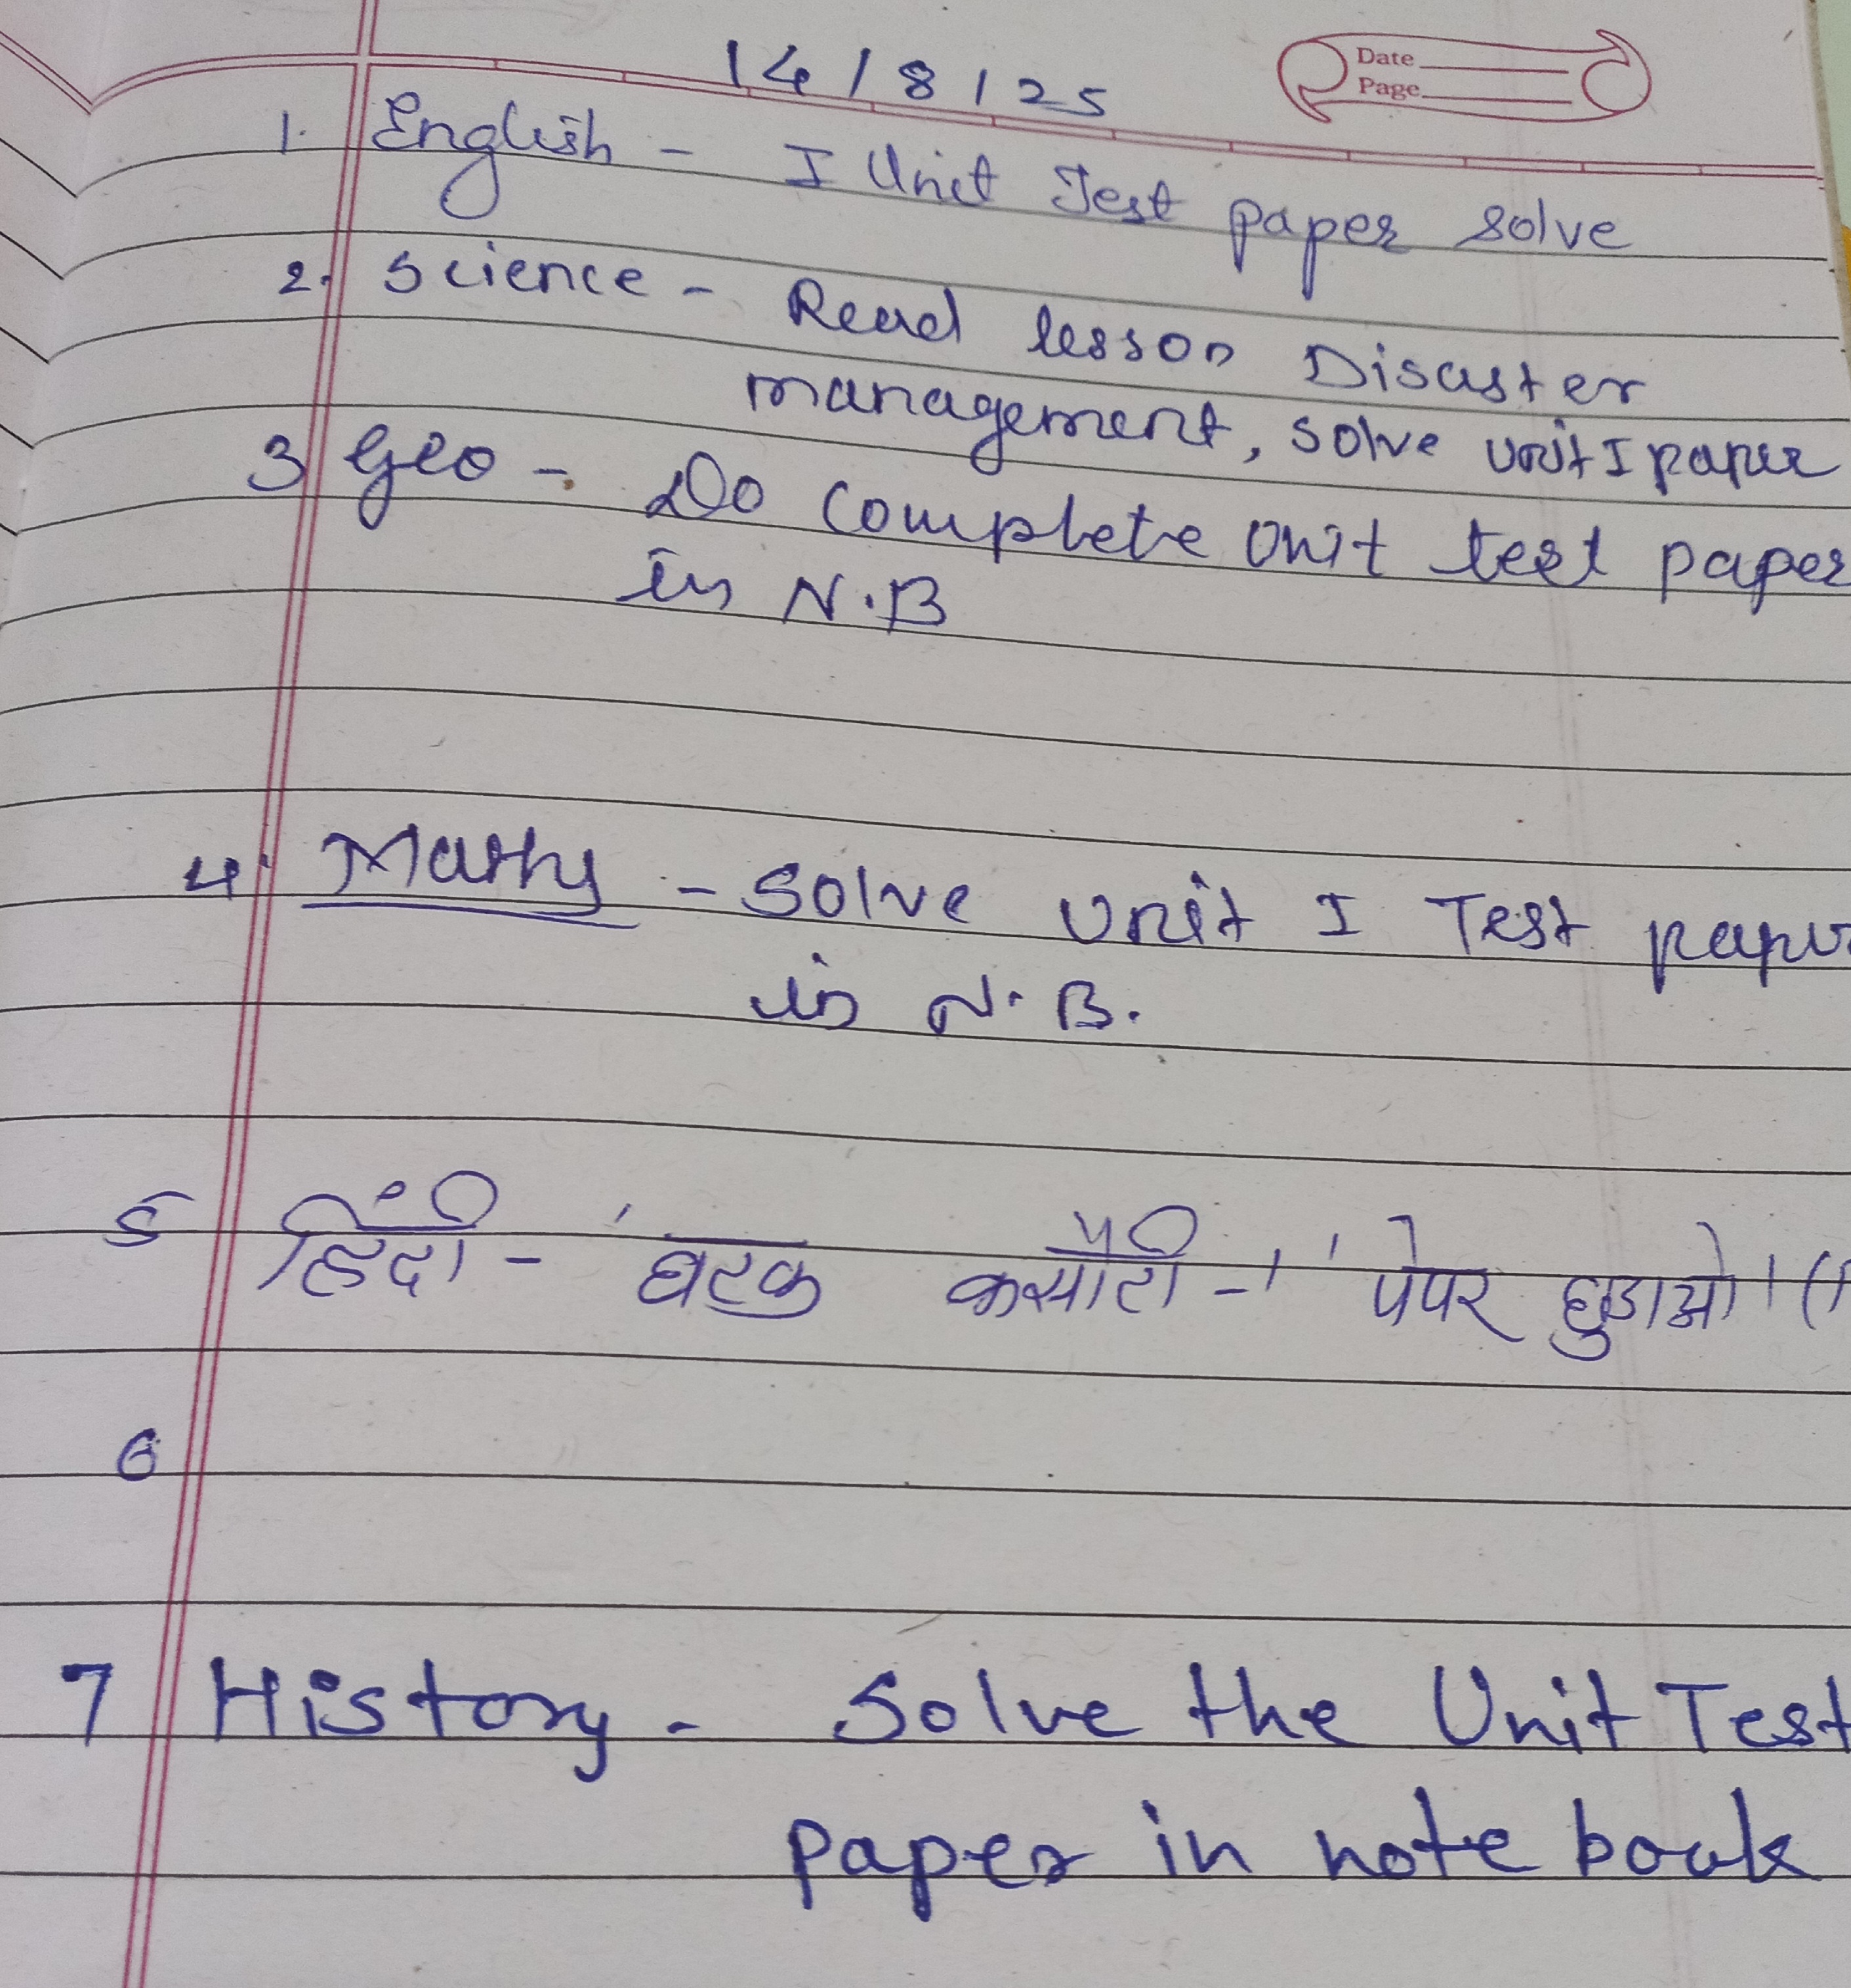 14/8/25
Date
Page
1. English - I Unit Test paper solve
2. Science - Read lesson Disaster
management, solve unit I paper
3 Geo - Do complete Unit test paper
in N.B
4. Maths - Solve Unit I Test paper
in N.B.
5 हिंदी - 'घटक कसौटी -।' पेपर छुडाओ।
6
7 History - Solve the Unit Test
paper in note book